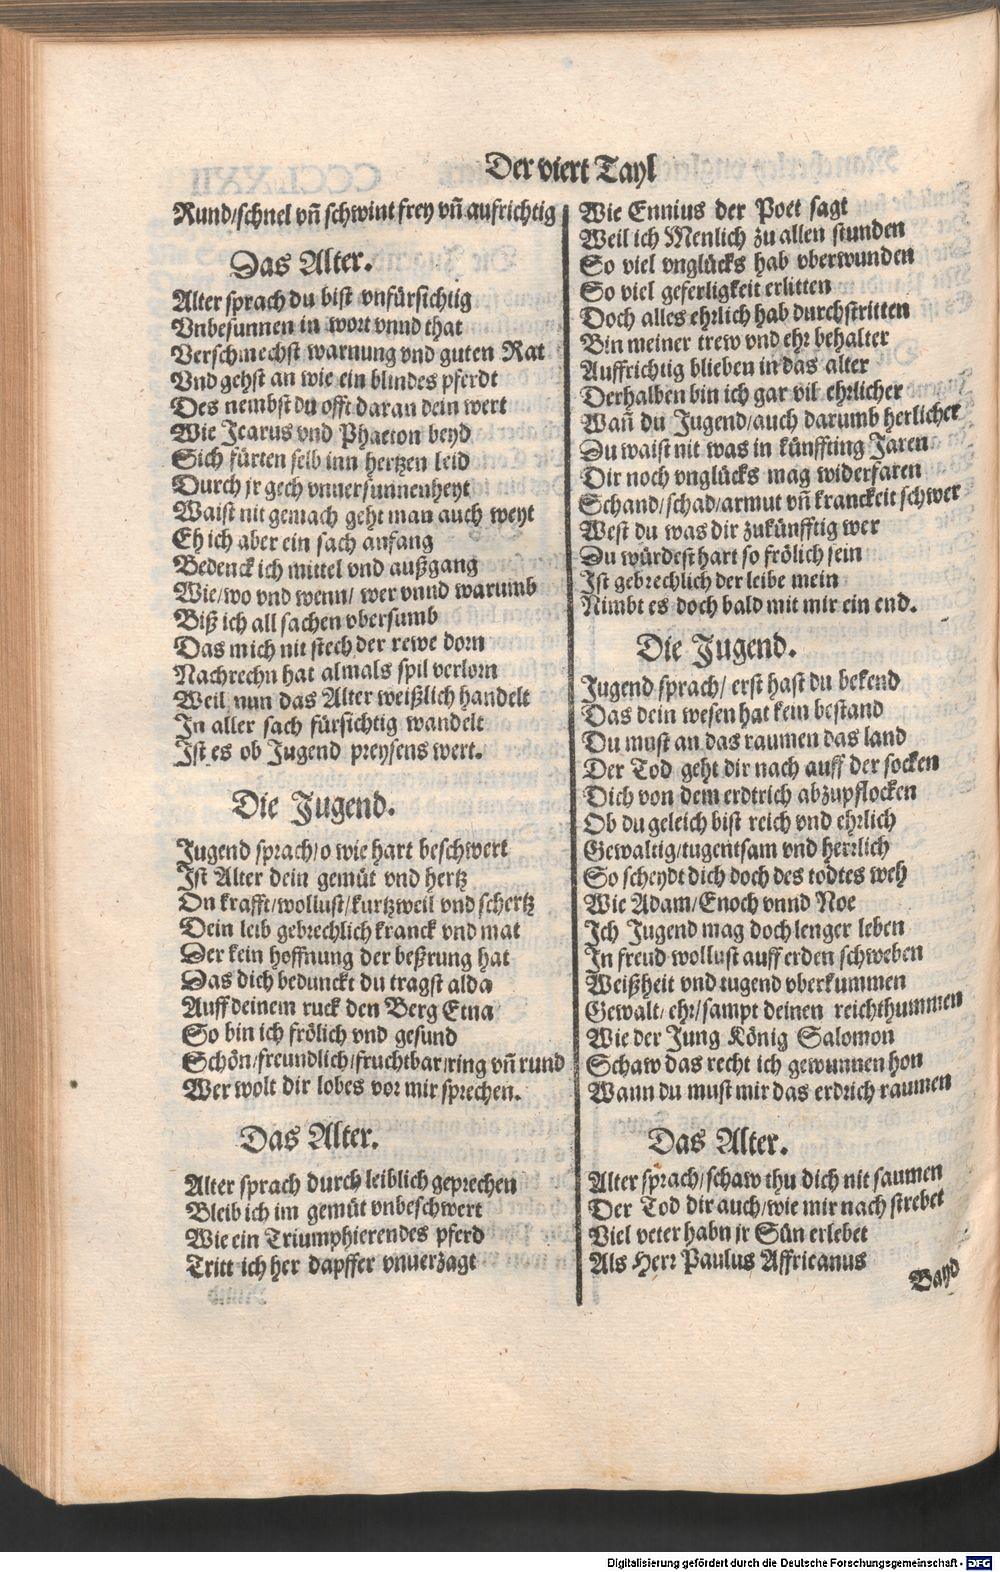 Der viert Tayl
Rund/schnel vñ schwint frey vñ aufrichtig
Das Alter.
Alter sprach du bist vnfürsichtig
Vnbesunnen in wort vnnd that
Verschmechst warnung vnd guten Rat
Vnd gehst an wie ein blindes pferdt
Des nembst du offt daran dein wert
Wie Icarus vnd Phaeton beyd
Sich fürten selb inn hertzen leid
Durch jr gech vnuersunnenheyt
Waist nit gemach geht man auch weyt
Eh ich aber ein sach anfang
Bedenck ich mittel vnd außgang
Wie/wo vnd wenn/ wer vnnd warumb
Biß ich all sachen vbersumb
Das mich nit stech der rewe dorn
Nachrechn hat almals spil verlorn
Weil nun das Alter weißlich handelt
In aller sach fürsichtig wandelt
Ist es ob Jugend preysens wert.
Die Jugend.
Jugend sprach/o wie hart beschwert
Ist Alter dein gemüt vnd hertz
On krafft/wollust/kurtzweil vnd schertz
Dein leib gebrechlich kranck vnd mat
Der kein hoffnung der beßrung hat
Das dich bedunckt du tragst alda
Auff deinem ruck den Berg Etna
So bin ich frölich vnd gesund
Schön/freundlich/fruchtbar/ring vñ rund
Wer wolt dir lobes vor mir sprechen.
Das Alter.
Alter sprach durch leiblich geprechen
Bleib ich im gemüt vnbeschwert
Wie ein Triumphierendes pferd
Tritt ich her dapffer vnuerzagt
Wie Ennius der Poet sagt
Weil ich Menlich zu allen stunden
So viel vnglücks hab vberwunden
So viel geferligkeit erlitten
Doch alles ehrlich hab durchstritten
Bin meiner trew vnd ehr behalter
Auffrichtig blieben in das alter
Derhalben bin ich gar vil ehrlicher
Wañ du Jugend/auch darumb herlicher
Du waist nit was in künffting Jaren
Dir noch vnglücks mag widerfaren
Schand/schad/armut vñ kranckeit schwer
West du was dir zukünfftig wer
Du würdest hart so frölich sein
Ist gebrechlich der leibe mein
Nimbt es doch bald mit mir ein end.
Die Jugend.
Jugend sprach/ erst hast du bekend
Das dein wesen hat kein bestand
Du must an das raumen das land
Der Tod geht dir nach auff der socken
Dich von dem erdtrich abzupflocken
Ob du geleich bist reich vnd ehrlich
Gewaltig/tugentsam vnd herrlich
So scheydt dich doch des todtes weh
Wie Adam/Enoch vnnd Noe
Ich Jugend mag doch lenger leben
In freud wollust auff erden schweben
Weißheit vnd tugend vberkummen
Gewalt/ ehr/sampt deinen reichthummen
Wie der Jung König Salomon
Schaw das recht ich gewunnen hon
Wann du must mir das erdrich raumen
Das Alter.
Alter sprach/schaw thu dich nit saumen
Der Tod dir auch/wie mir nach strebet
Viel veter habn jr Sün erlebet
Als Herr Paulus Affricanus
Bayd
Digitalisierung gefördert durch die Deutsche Forschungsgemeinschaft - DFG